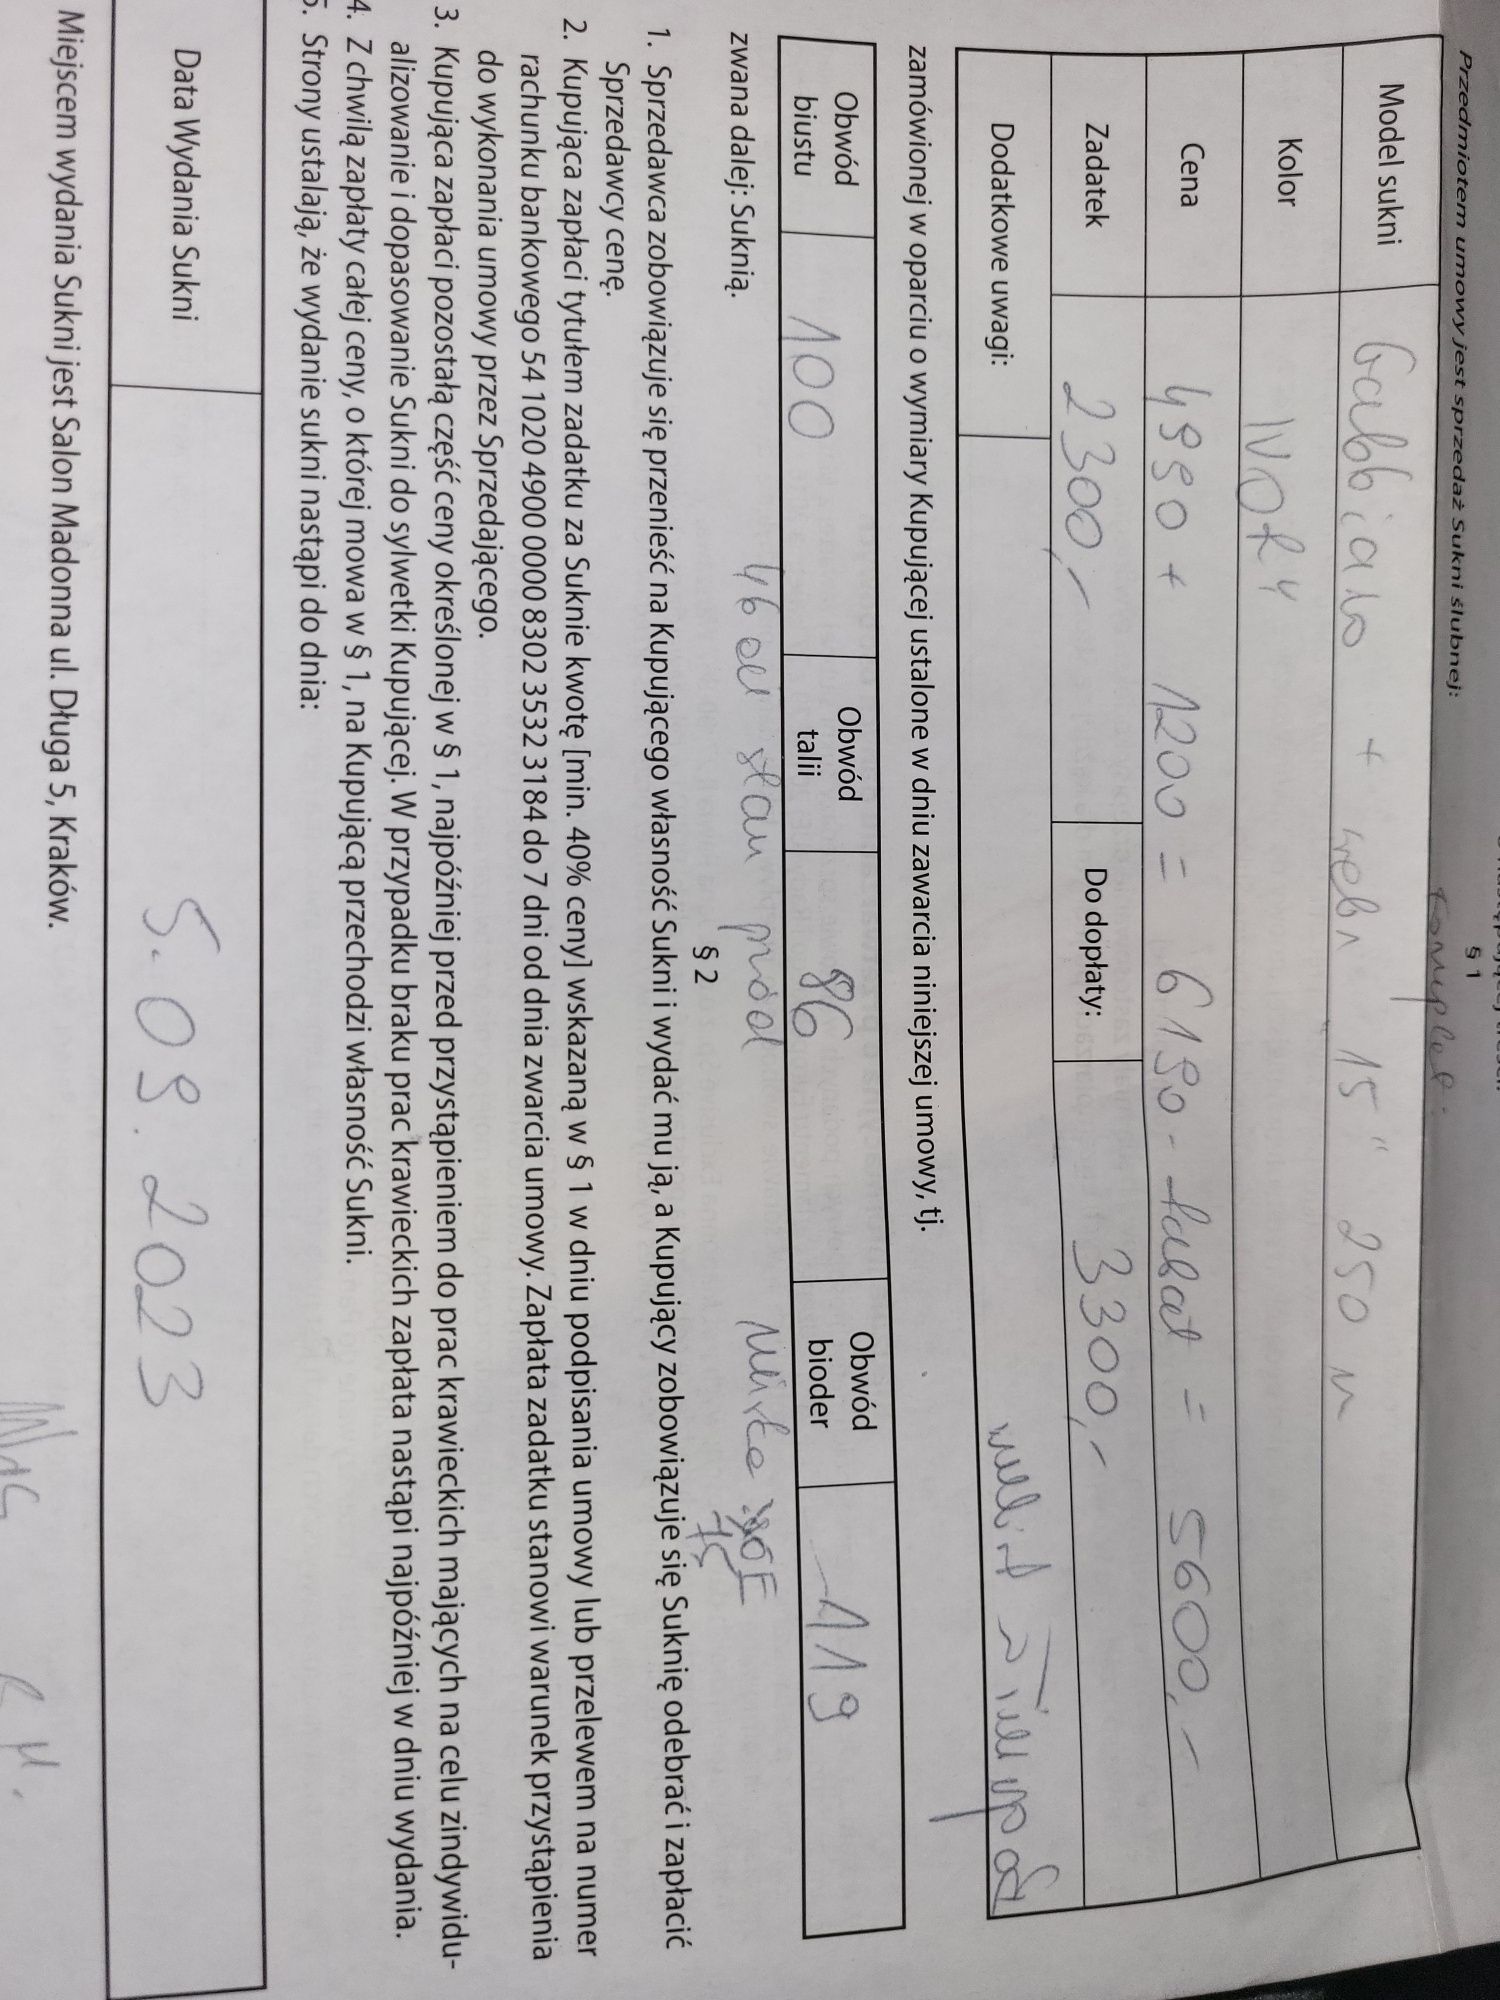 § 1
Przedmiotem umowy jest sprzedaż Sukni ślubnej:
komplet:
Model sukni Gabbiano + welon 15" 250
Kolor IVORY
Cena 4990 + 1200 = 6190 - rabat = 5600,-
Zadatek 2300,- Do dopłaty: 3300,-
Dodatkowe uwagi:
zamówionej w oparciu o wymiary Kupującej ustalone w dniu zawarcia niniejszej umowy, tj.
Obwód biustu 100 Obwód talii 86 Obwód bioder 119
zwana dalej: Suknią. 46 od stan przód
§ 2
1. Sprzedawca zobowiązuje się przenieść na Kupującego własność Sukni i wydać mu ją, a Kupujący zobowiązuje się Suknię odebrać i zapłacić
Sprzedawcy cenę.
2. Kupująca zapłaci tytułem zadatku za Suknie kwotę [min. 40% ceny] wskazaną w § 1 w dniu podpisania umowy lub przelewem na numer
rachunku bankowego 54 1020 4900 0000 8302 3532 3184 do 7 dni od dnia zwarcia umowy. Zapłata zadatku stanowi warunek przystąpienia
do wykonania umowy przez Sprzedającego.
3. Kupująca zapłaci pozostałą część ceny określonej w § 1, najpóźniej przed przystąpieniem do prac krawieckich mających na celu zindywidu-
alizowanie i dopasowanie Sukni do sylwetki Kupującej. W przypadku braku prac krawieckich zapłata nastąpi najpóźniej w dniu wydania.
4. Z chwilą zapłaty całej ceny, o której mowa w § 1, na Kupującą przechodzi własność Sukni.
5. Strony ustalają, że wydanie sukni nastąpi do dnia:
Data Wydania Sukni 5.09.2023
Miejscem wydania Sukni jest Salon Madonna ul. Długa 5, Kraków.